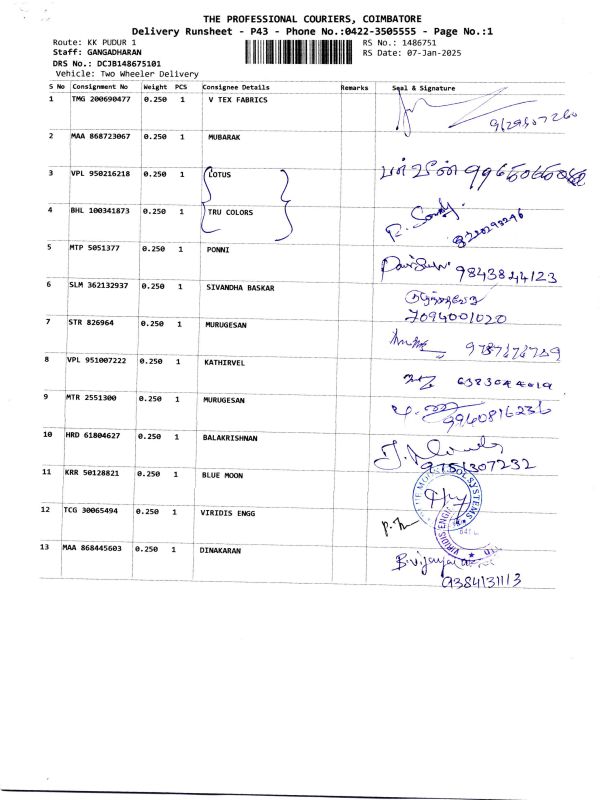 THE PROFESSIONAL COURIERS, COIMBATORE
Delivery Runsheet - P43 - Phone No.:0422-3505555 - Page No.:1
Route: KK PUDUR 1 RS No.: 1486751
Staff: GANGADHARAN RS Date: 07-Jan-2025
DRS No.: DCJB148675101
Vehicle: Two Wheeler Delivery
S No Consignment No Weight PCS Consignee Details Remarks Seal & Signature
1 TMG 200690477 0.250 1 V TEX FABRICS 9629507260
2 MAA 868723067 0.250 1 MUBARAK
3 VPL 950216218 0.250 1 LOTUS
4 BHL 100341873 0.250 1 TRU COLORS
5 MTP 5051377 0.250 1 PONNI 9843844123
6 SLM 362132937 0.250 1 SIVANDHA BASKAR
7094001020
7 STR 826964 0.250 1 MURUGESAN
8 VPL 951007222 0.250 1 KATHIRVEL
9 MTR 2551300 0.250 1 MURUGESAN
9960816236
10 HRD 61804627 0.250 1 BALAKRISHNAN
9751307232
11 KRR 50128821 0.250 1 BLUE MOON
12 TCG 30065494 0.250 1 VIRIDIS ENGG
13 MAA 868445603 0.250 1 DINAKARAN
9384131113